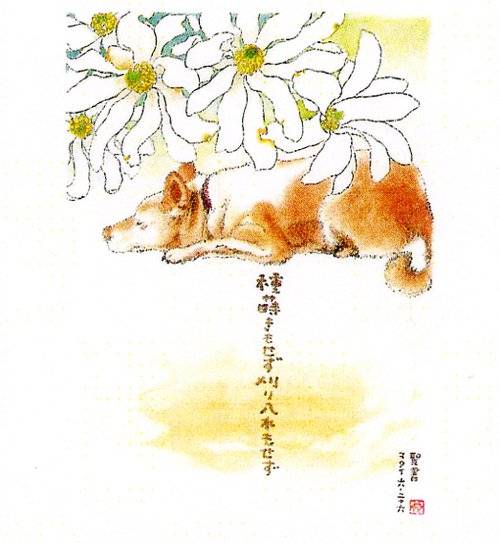 種蒔きもせず刈り入れもせず
聖書
マタイ六・二十六